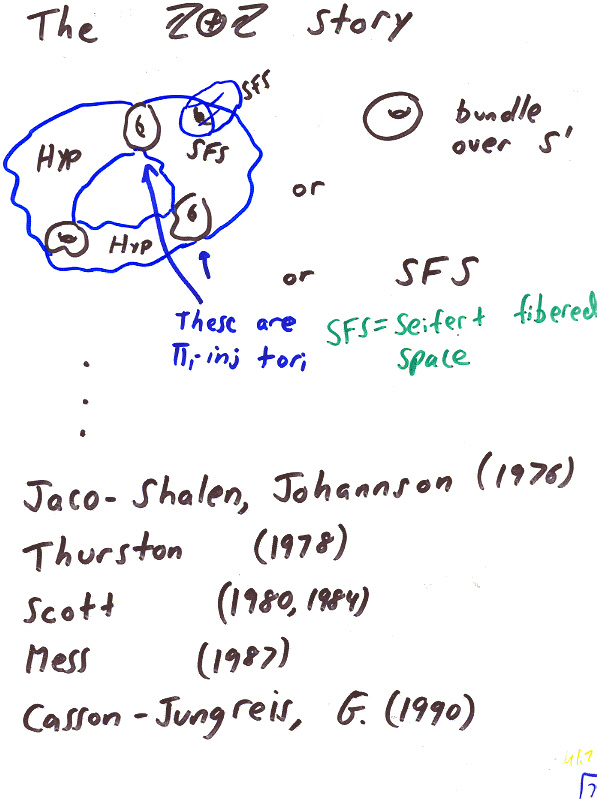 The ℤ⊕ℤ story
SFS
Hyp
SFS
Hyp
bundle
over S¹
or
or SFS
These are
π₁-inj tori
SFS = Seifert fibered
space
Jaco-Shalen, Johannson (1976)
Thurston (1978)
Scott (1980, 1984)
Mess (1987)
Casson-Jungreis, G. (1990)